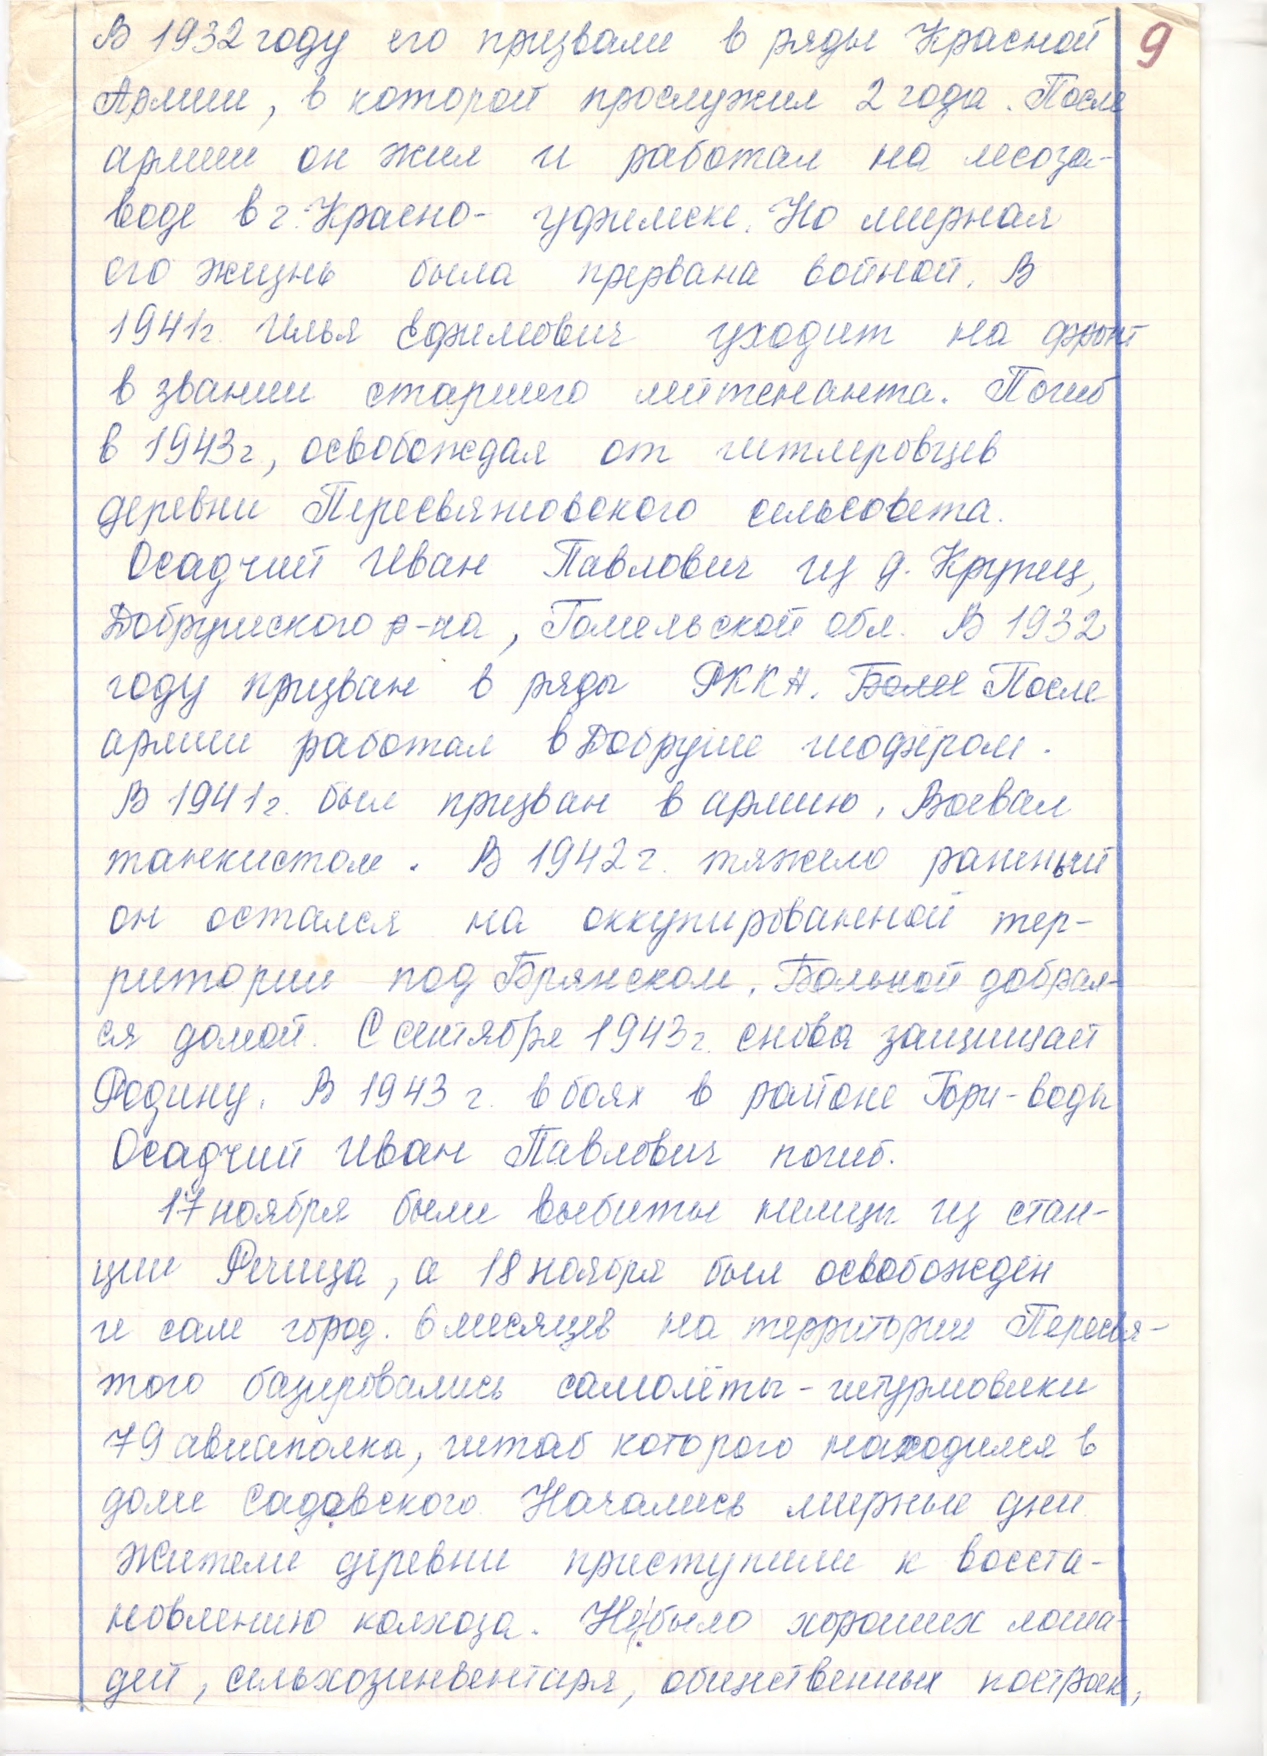 9
В 1932 году его призвали в ряды Красной
Армии, в которой прослужил 2 года. После
армии он жил и работал на лесоза-
воде в г. Красно- уфимске. Но мирная
его жизнь была прервана войной. В
1941г. Илья Ефимович уходит на фронт
в звании старшего лейтенанта. Погиб
в 1943г, освобождая от гитлеровцев
деревни Пересвятовского сельсовета.
Осадчий Иван Павлович из д. Крупец,
Добрушского р-на, Гомельской обл. В 1932
году призван в ряды РККА. Более После
армии работал в Добруше шофёром.
В 1941г. был призван в армию. Воевал
танкистом. В 1942г. тяжело раненный
он остался на оккупированной тер-
ритории под Брянском. Больной добрал-
ся домой. С сентября 1943г. снова защищает
Родину. В 1943 г. в боях в районе Гори-воды
Осадчий Иван Павлович погиб.
17 ноября были выбиты немцы из стан-
ции Речица, а 18 ноября был освобождён
и сам город. 6 месяцев на территории Пересвя-
того базировались самолёты-штурмовики
79 авиаполка, штаб которого находился в
доме Садовского. Начались мирные дни.
Жители деревни приступили к восста-
новлению колхоза. Не было хороших лоша-
дей, сельхозинвентаря, общественных построек,